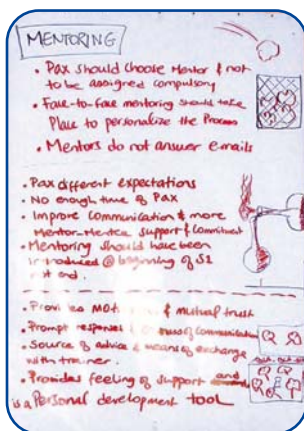 MENTORING
• Pax should choose Mentor & not
to be assigned compulsory
• Face-to-face mentoring should take
Place to personalize the Process
• Mentors do not answer emails
• Pax different expectations
• No enough time of Pax
• Improve communication & more
Mentor-Mentee support & Commitment
• Mentoring should have been
introduced @ beginning of S1
not end.
• Provides & mutual trust
• Prompt responses & of communication
• Source of advice & means of exchange
with trainer.
• Provides feeling of support and
is a Personal development tool